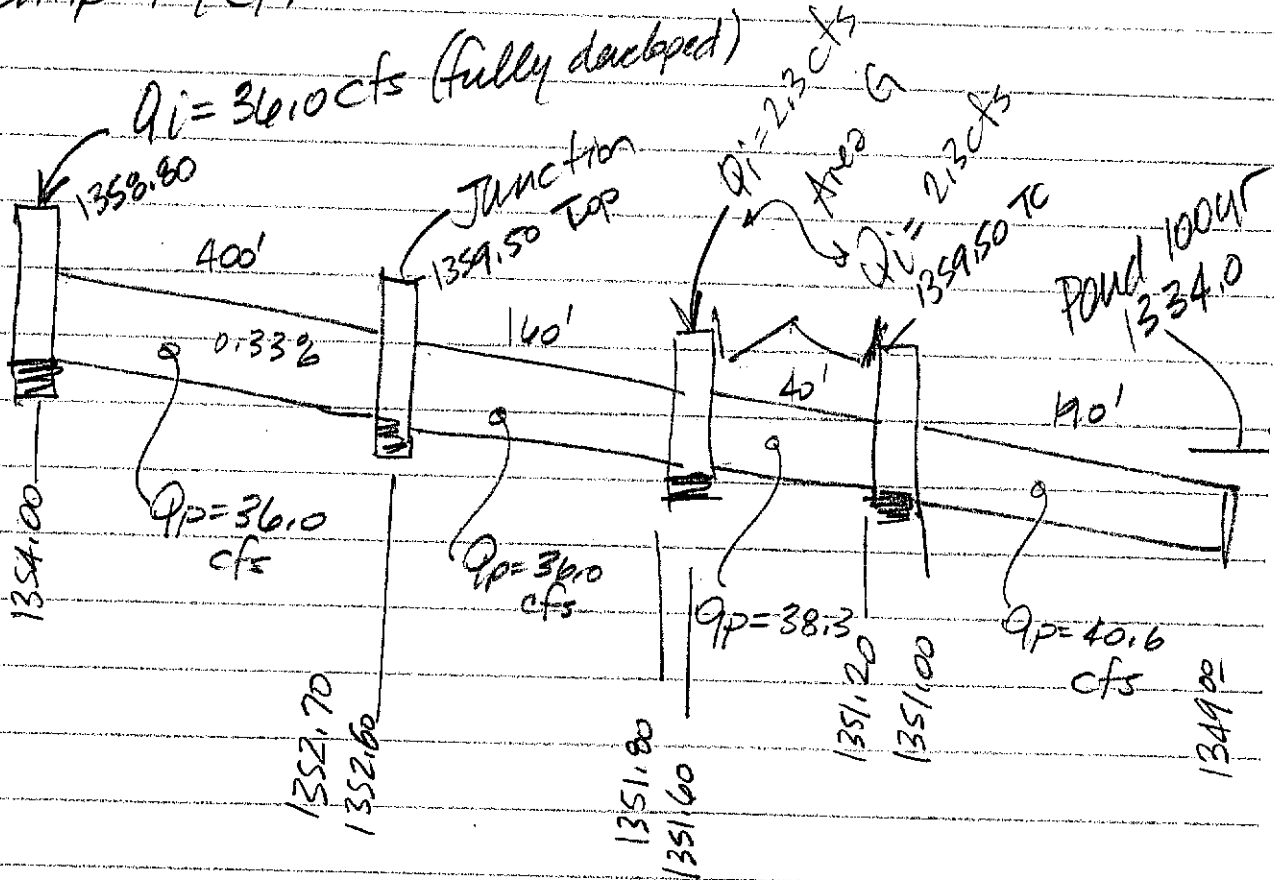 Qi = 36.0 cfs (fully developed)
1358.80
Junction
1359.50 Top
Qi = 2.3 cfs
Area G
Qi = 2.3 cfs
1359.50 TC
Pond 100yr
1334.0
400'
0.33%
160'
40'
190'
Qp = 36.0
cfs
Qp = 36.0
cfs
Qp = 38.3
Qp = 40.6
cfs
1354.00
1352.70
1352.60
1351.80
1351.60
1351.20
1351.00
1349.00